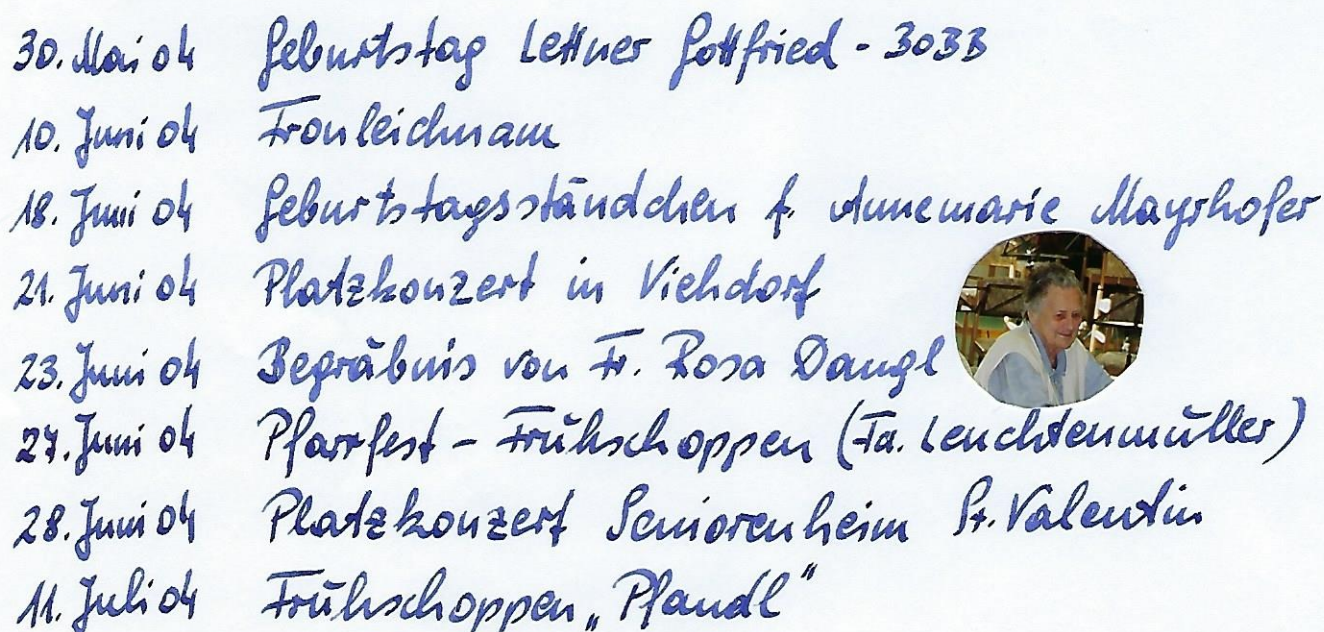 30. Mai 04 Geburtstag Lettner Gottfried - 30BB
10. Juni 04 Fronleichnam
18. Juni 04 Geburtstagsständchen f. Annemarie Mayrhofer
21. Juni 04 Platzkonzert in Viehdorf
23. Juni 04 Begräbnis von Fr. Rosa Dangl
27. Juni 04 Pfarrfest - Frühschoppen (Fa. Leuchtenmüller)
28. Juni 04 Platzkonzert Seniorenheim St. Valentin
11. Juli 04 Frühschoppen „Pfandl"